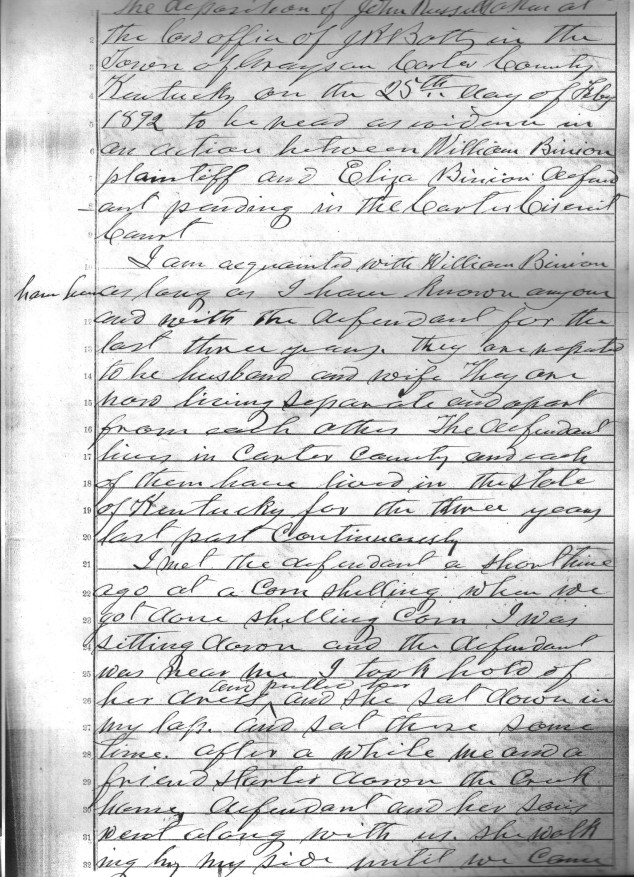 The deposition of John Russell taken at
the law office of J R Botts in the
Town of Grayson Carter County
Kentucky on the 25th day of Feby
1892 to be read as evidence in
an action between William Binion
plaintiff and Eliza Binion defend
ant pending in the Carter Circuit
Court
I am acquainted with William Binion
have been as long as I have known anyone
and with the defendant for the
last three years. they are reputed
to be husband and wife They are
now living separate and apart
from each other The defendant
lives in Carter County and each
of them have lived in the state
of Kentucky for the three years
last past Continuously
I met the defendant a short time
ago at a Corn shelling when we
got done shelling Corn I was
sitting down and the defendant
was near me I took hold of
her dress and pulled her and she sat down in
my lap. and sat there some
time. after a while me and a
friend started down the Creek
home, defendant and her sons
went along with us. she walk
ing by my side until we Came